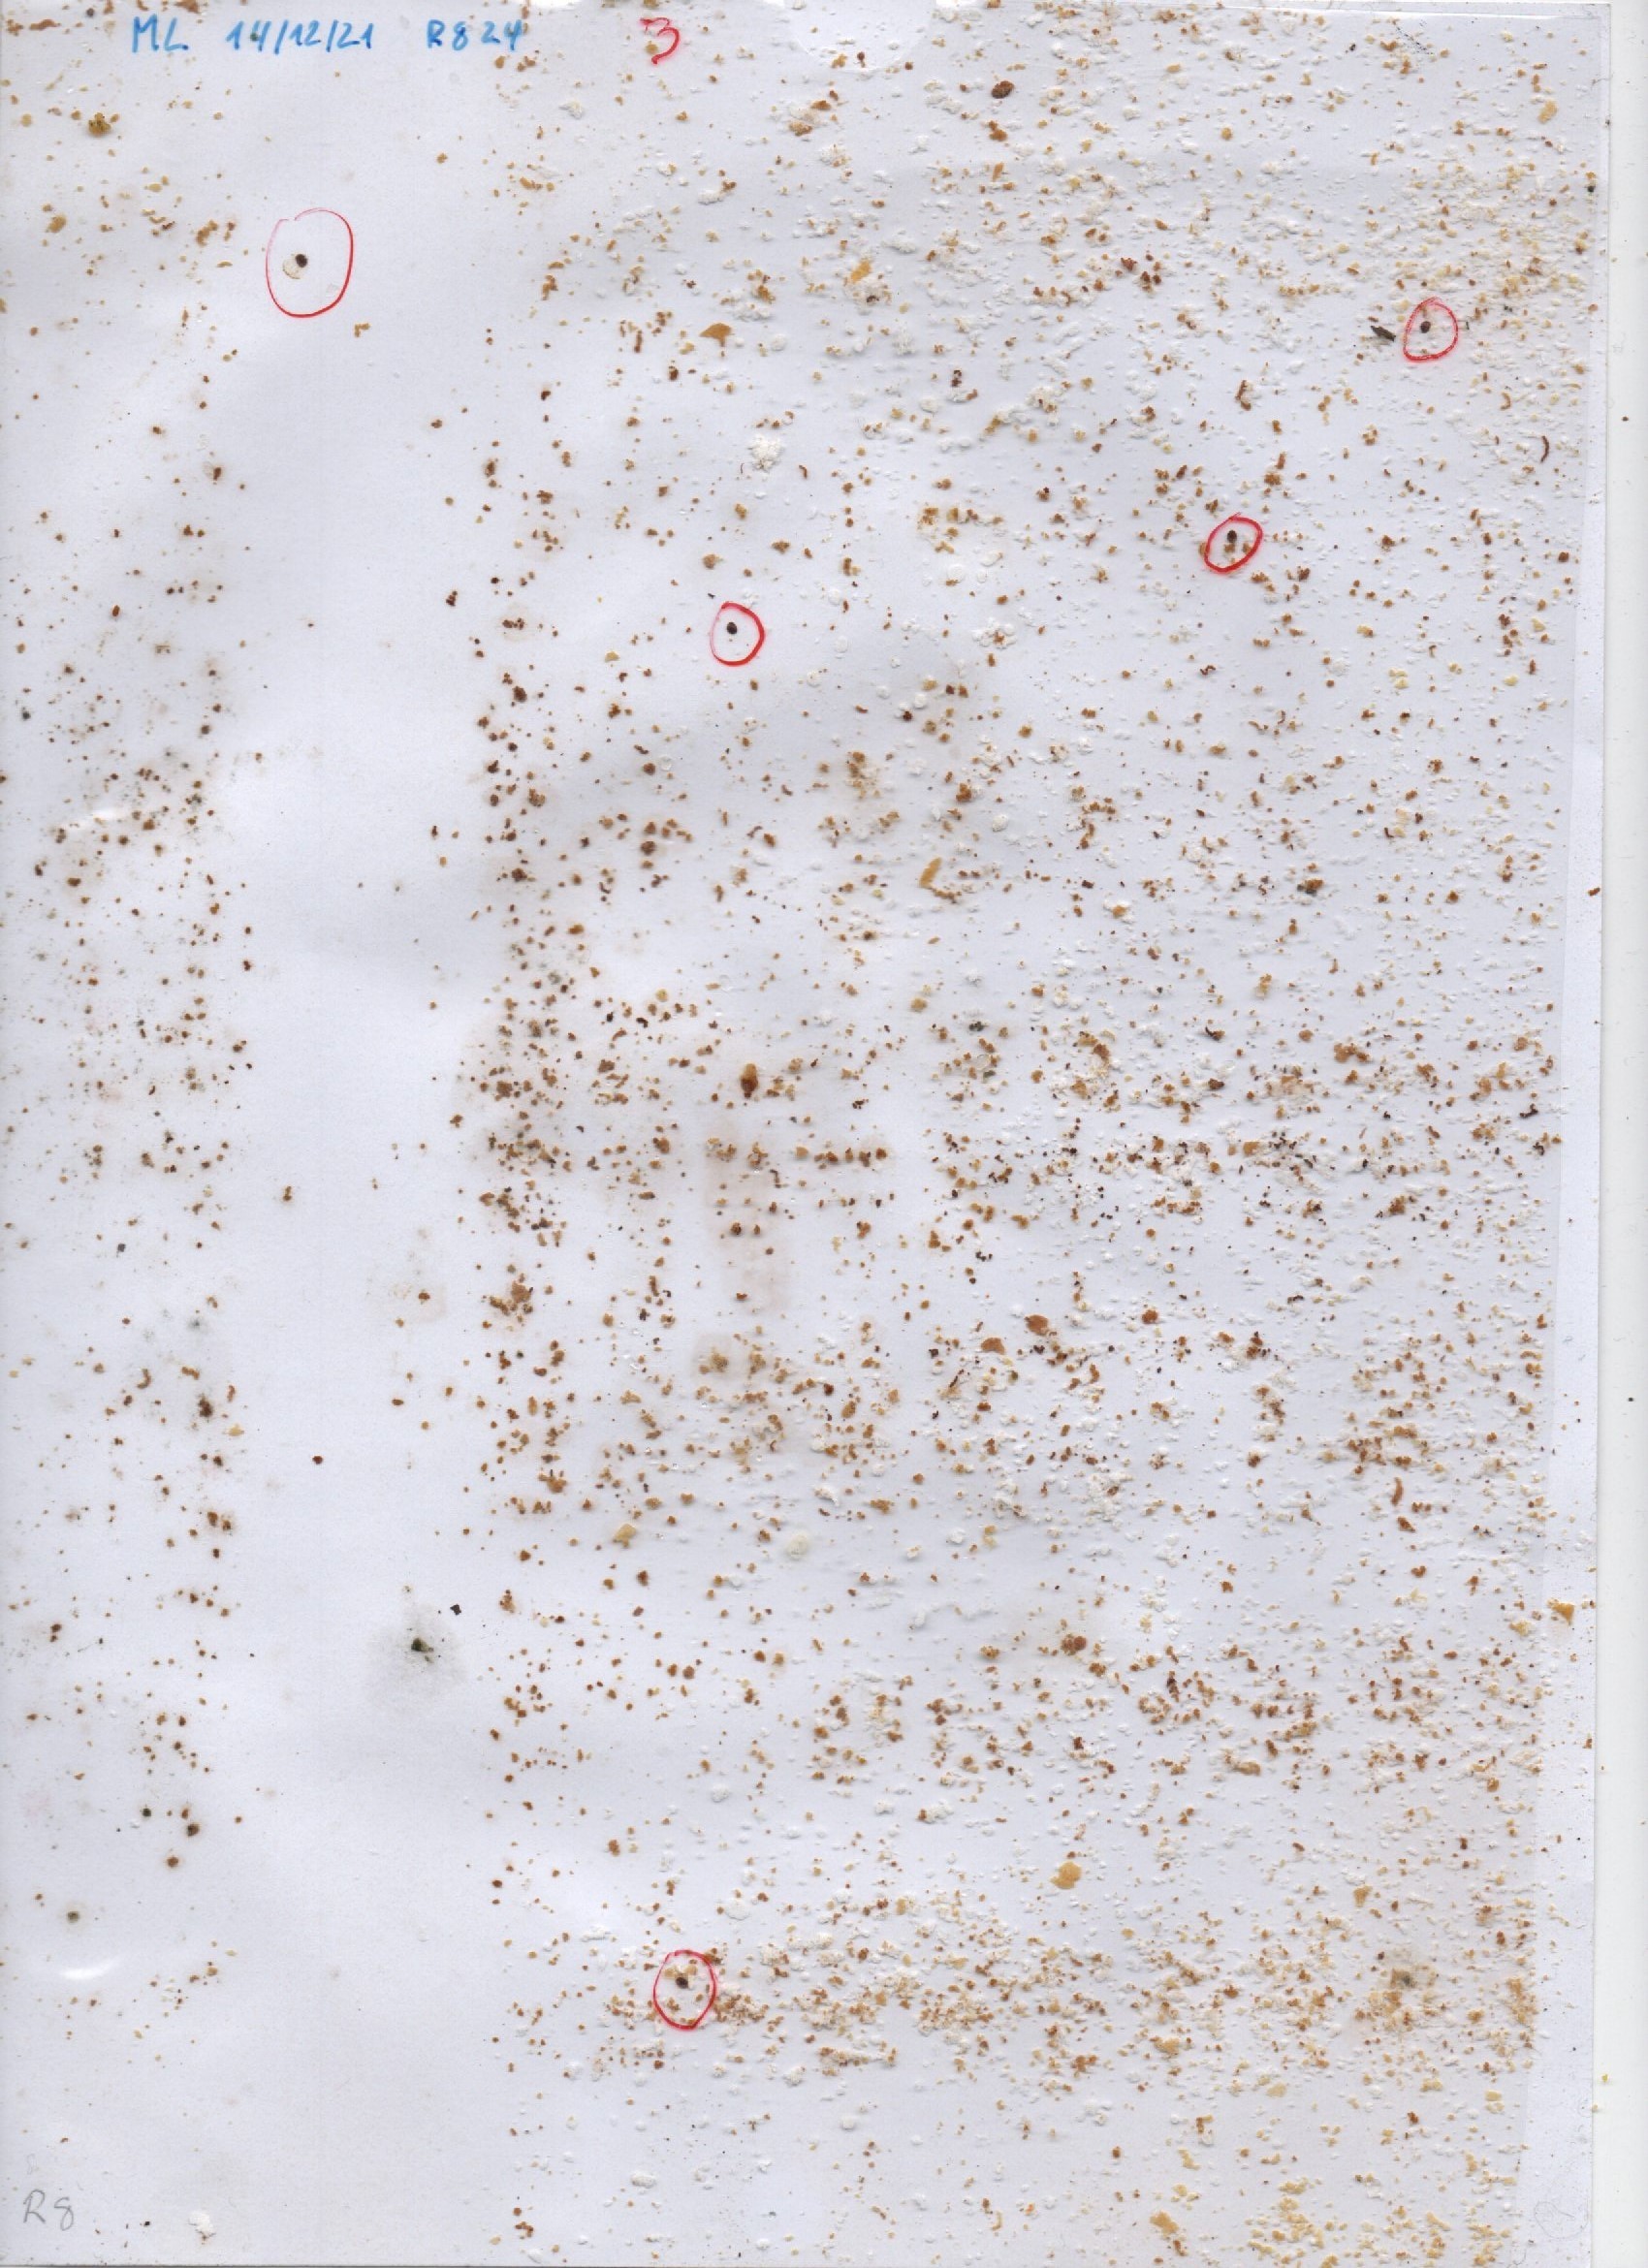 ML 14/12/21 R824 3
R8